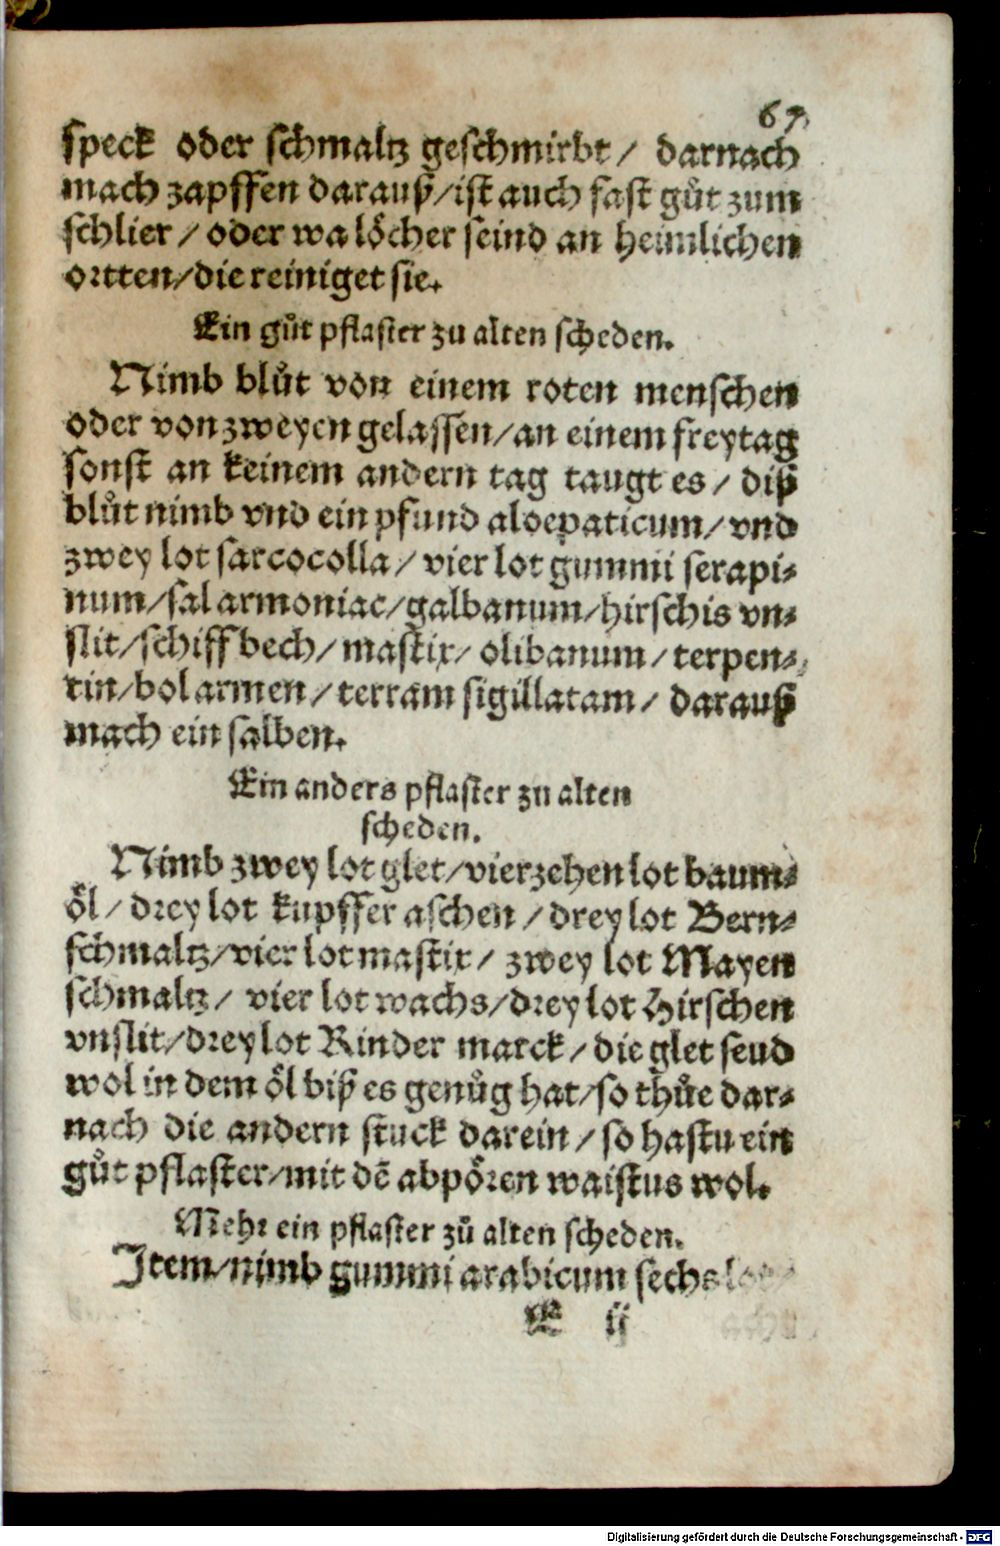 67.
speck oder schmaltz geschmirbt / darnach
mach zapffen darauß/ist auch fast gůt zum
schlier / oder wa löcher seind an heimlichen
ortten/die reiniget sie.
Ein gůt pflaster zu alten scheden.
Nimb blůt von einem roten menschen
oder von zweyen gelassen/an einem freytag
sonst an keinem andern tag taugt es / diß
blůt nimb vnd ein pfund aloepaticum/vnd
zwey lot sarcocolla / vier lot gummi serapi-
num/sal armoniac/galbanum/hirschis vn-
slit/schiffbech/mastix/olibanum/terpen-
tin/bolarmen/terram sigillatam / darauß
mach ein salben.
Ein anders pflaster zu alten
scheden.
Nimb zwey lot glet/vierzehen lot baum-
öl / drey lot kupffer aschen / drey lot Bern-
schmaltz/vier lot mastix / zwey lot Mayen
schmaltz / vier lot wachs/drey lot Hirschen
vnslit/drey lot Rinder marck / die glet seud
wol in dem öl biß es genůg hat/so thůe dar-
nach die andern stuck darein / so hastu ein
gůt pflaster/mit dē abpören waistus wol.
Mehr ein pflaster zů alten scheden.
Item/nimb gummi arabicum sechs lot
ij
Digitalisierung gefördert durch die Deutsche Forschungsgemeinschaft - DFG